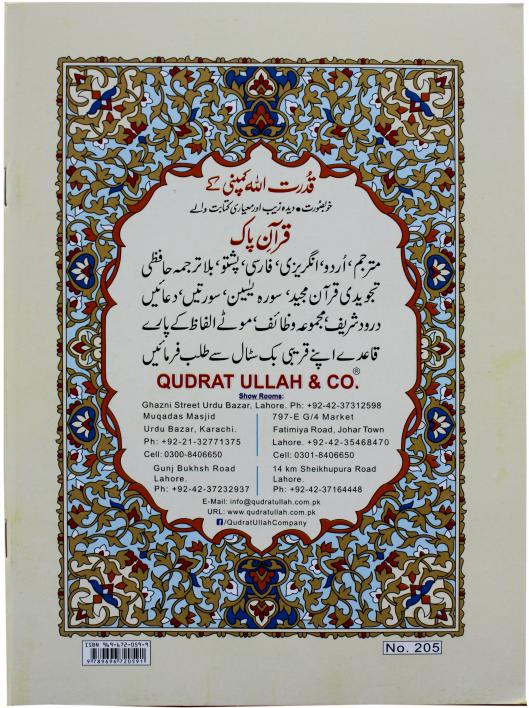 قدرت اللہ کمپنی کے
خوبصورت • دیدہ زیب اور معیاری کتابت والے
قرآن پاک
مترجم، اُردو، انگریزی، فارسی، پشتو، بلا ترجمہ حافظی
تجویدی قرآن مجید، سورہ یٰسین، سورتیں، دعائیں
درود شریف، مجموعہ وظائف، موٹے الفاظ کے پارے
قاعدے اپنے قریبی بک سٹال سے طلب فرمائیں
QUDRAT ULLAH & CO.®
Show Rooms:
Ghazni Street Urdu Bazar, Lahore. Ph: +92-42-37312598
Muqadas Masjid
Urdu Bazar, Karachi.
Ph: +92-21-32771375
Cell: 0300-8406650
797-E G/4 Market
Fatimiya Road, Johar Town
Lahore. +92-42-35468470
Cell: 0301-8406650
Gunj Bukhsh Road
Lahore.
Ph: +92-42-37232937
14 km Sheikhupura Road
Lahore.
Ph: +92-42-37164448
E-Mail: info@qudratullah.com.pk
URL: www.qudratullah.com.pk
f/QudratUllahCompany
ISBN 969-672-059-9
9 789696 720591
No. 205